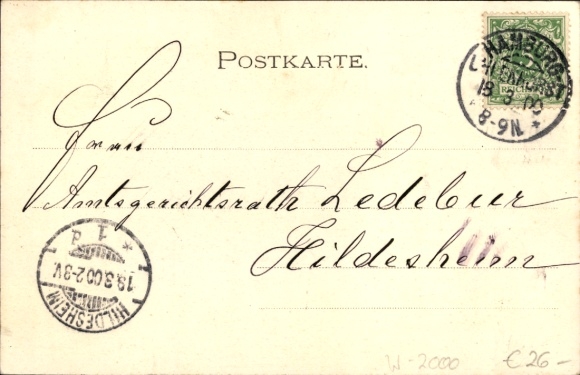 POSTKARTE.
HAMBURG-ST.
18.3.00
8-9N *
Herrn
Amtsgerichtsrath Ledebur
Hildesheim
* 1 d
19.3.00 2-3V.
HILDESHEIM
W-2000
€ 26-